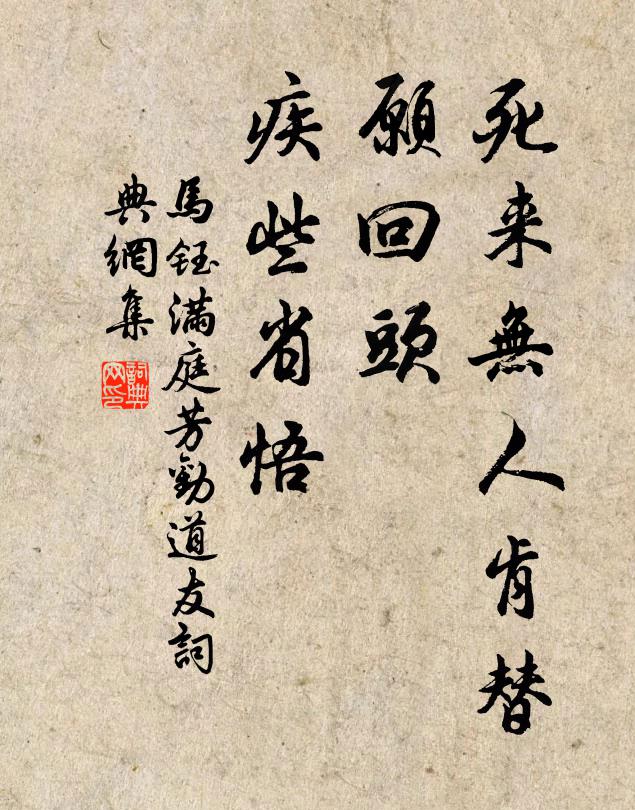 死来無人肯替
願回頭
疾些省悟
馬鈺滿庭芳勸道友詞
典網集
詞典網印